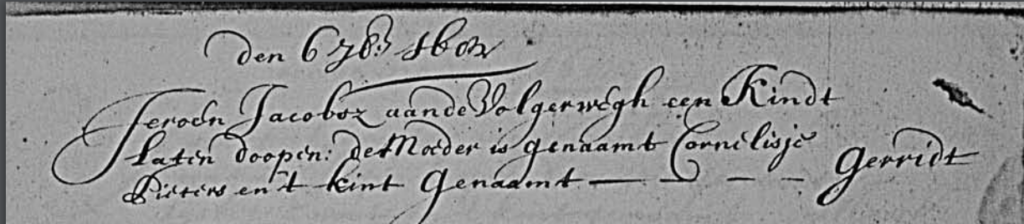 den 6 7br:
Jeroen Jacobsz aande Volgerwegh een Kindt
laten doopen: de Moeder is genaamt Cornelisje
Pieters en 't kint Genaamt — — — — Gerridt